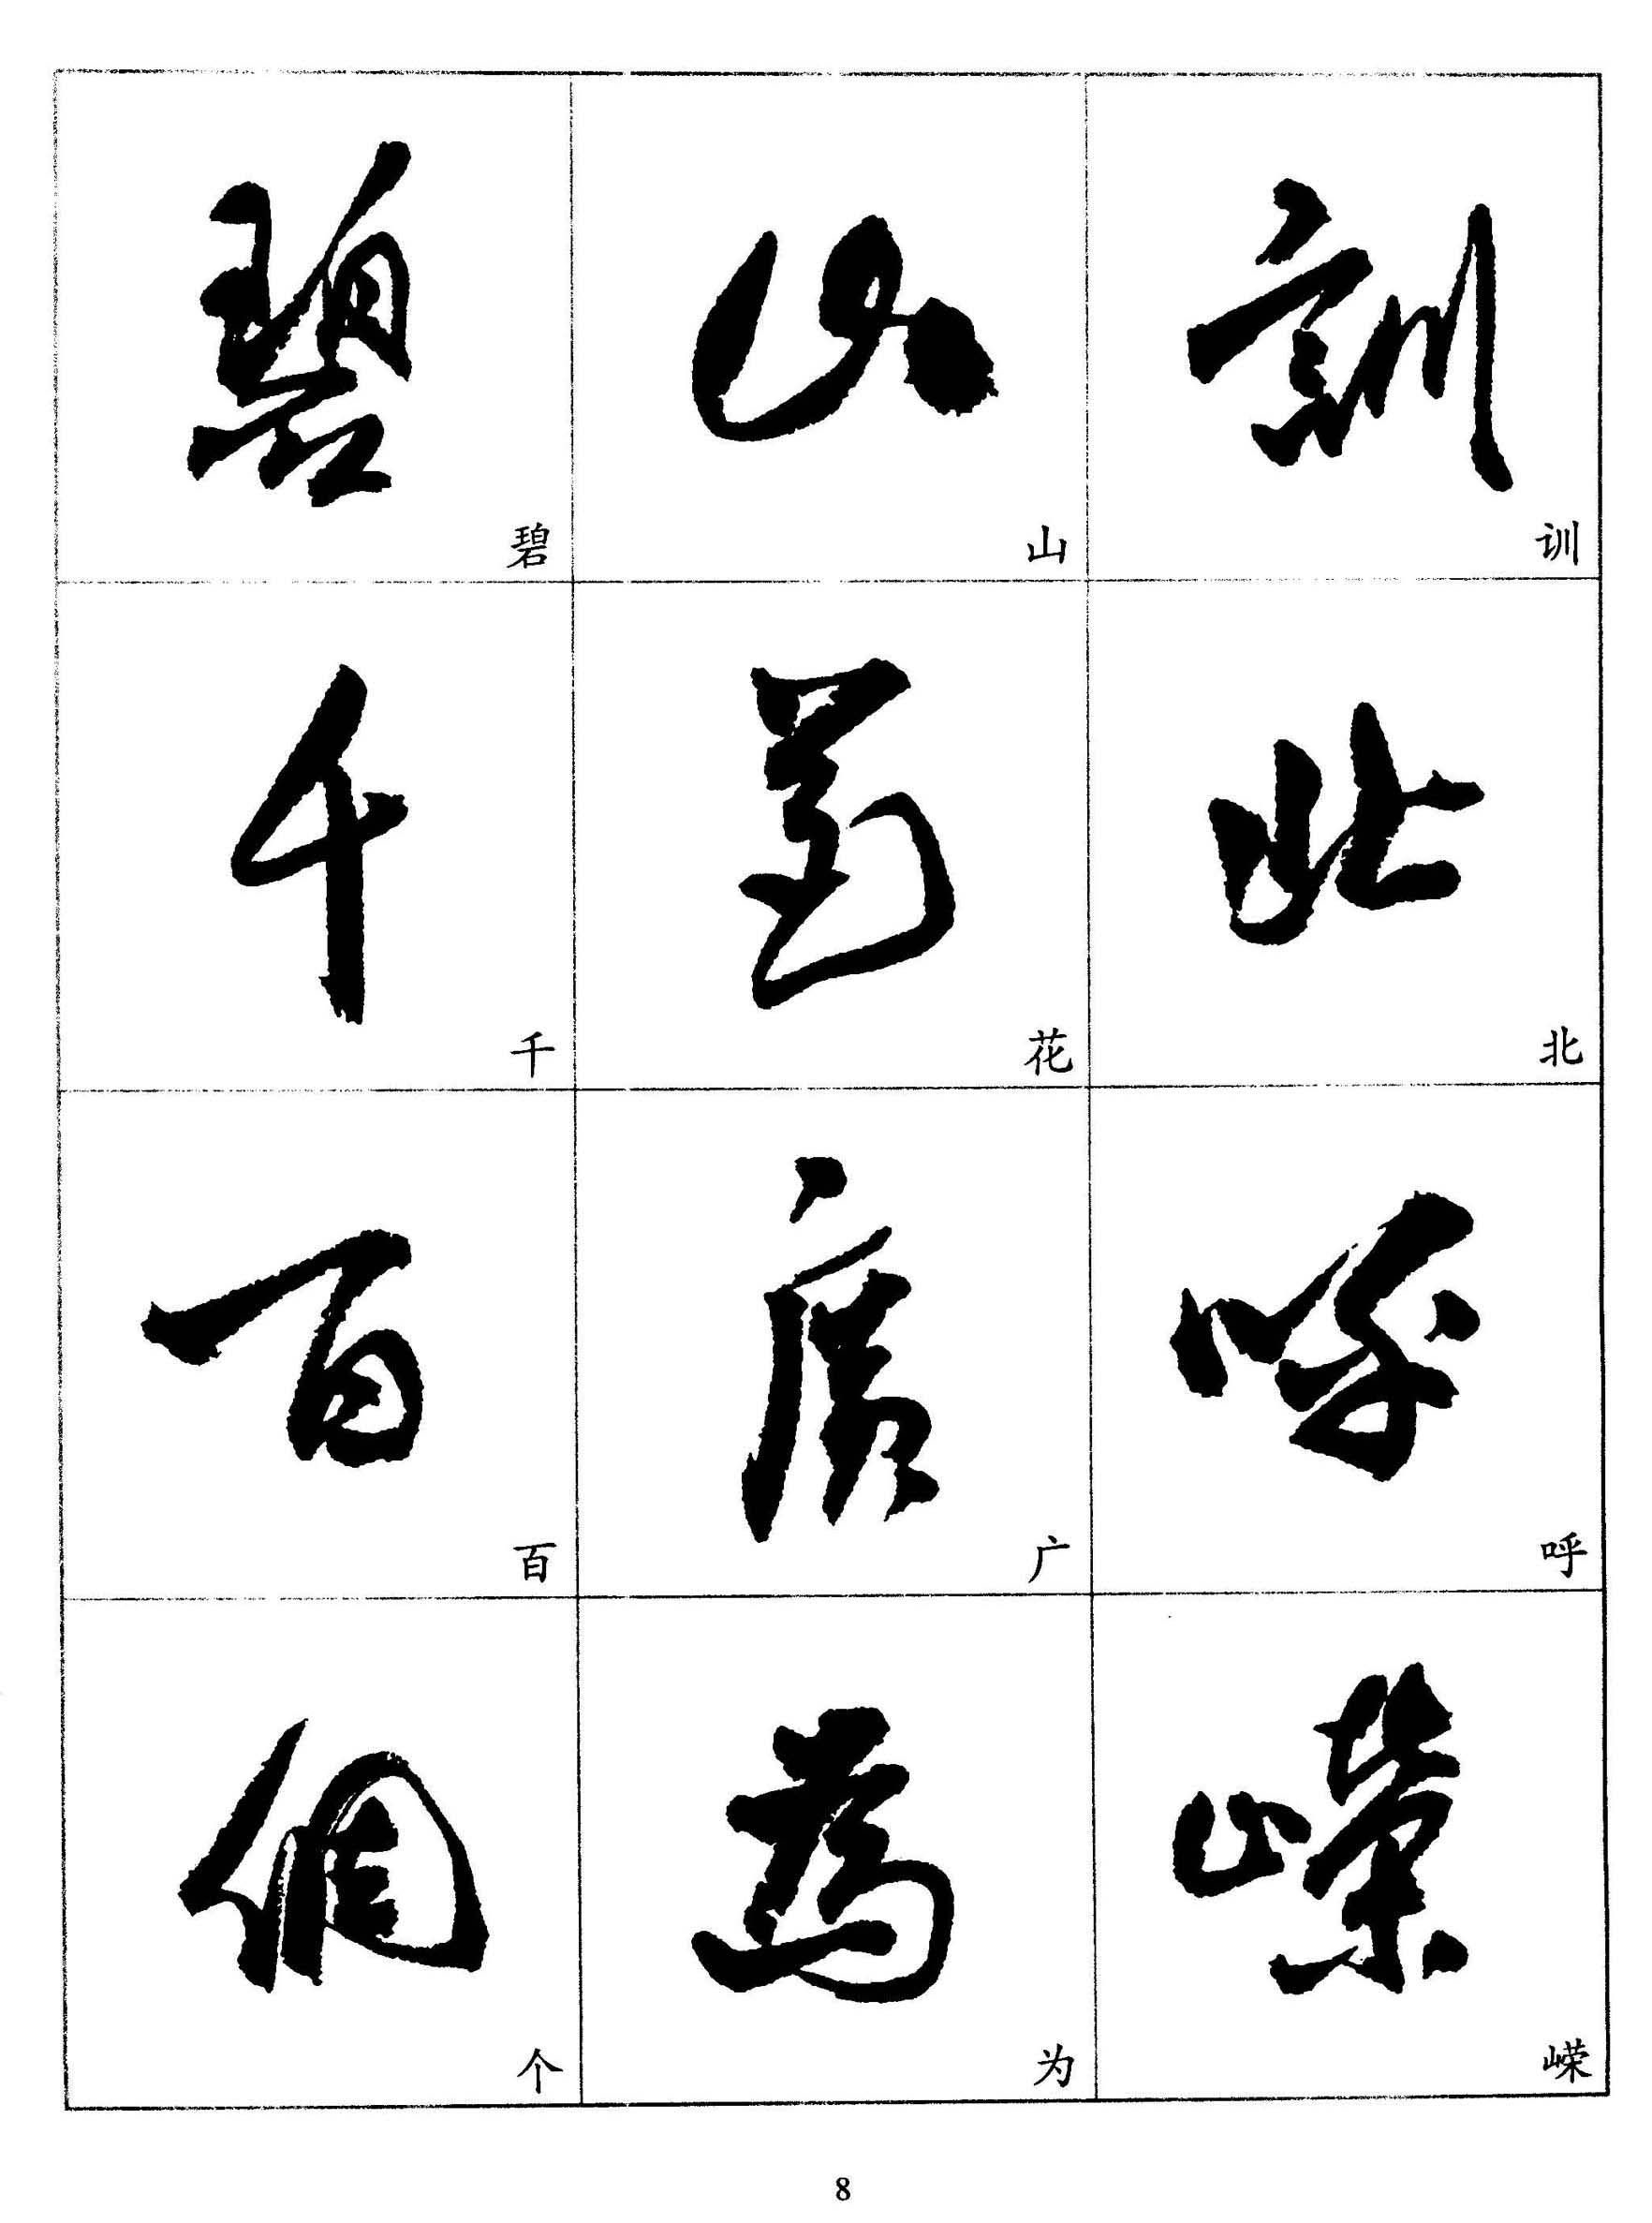 碧 山 訓
碧 山 训
千 花 北
千 花 北
百 廣 呼
百 广 呼
個 為 嶸
个 为 嵘
8